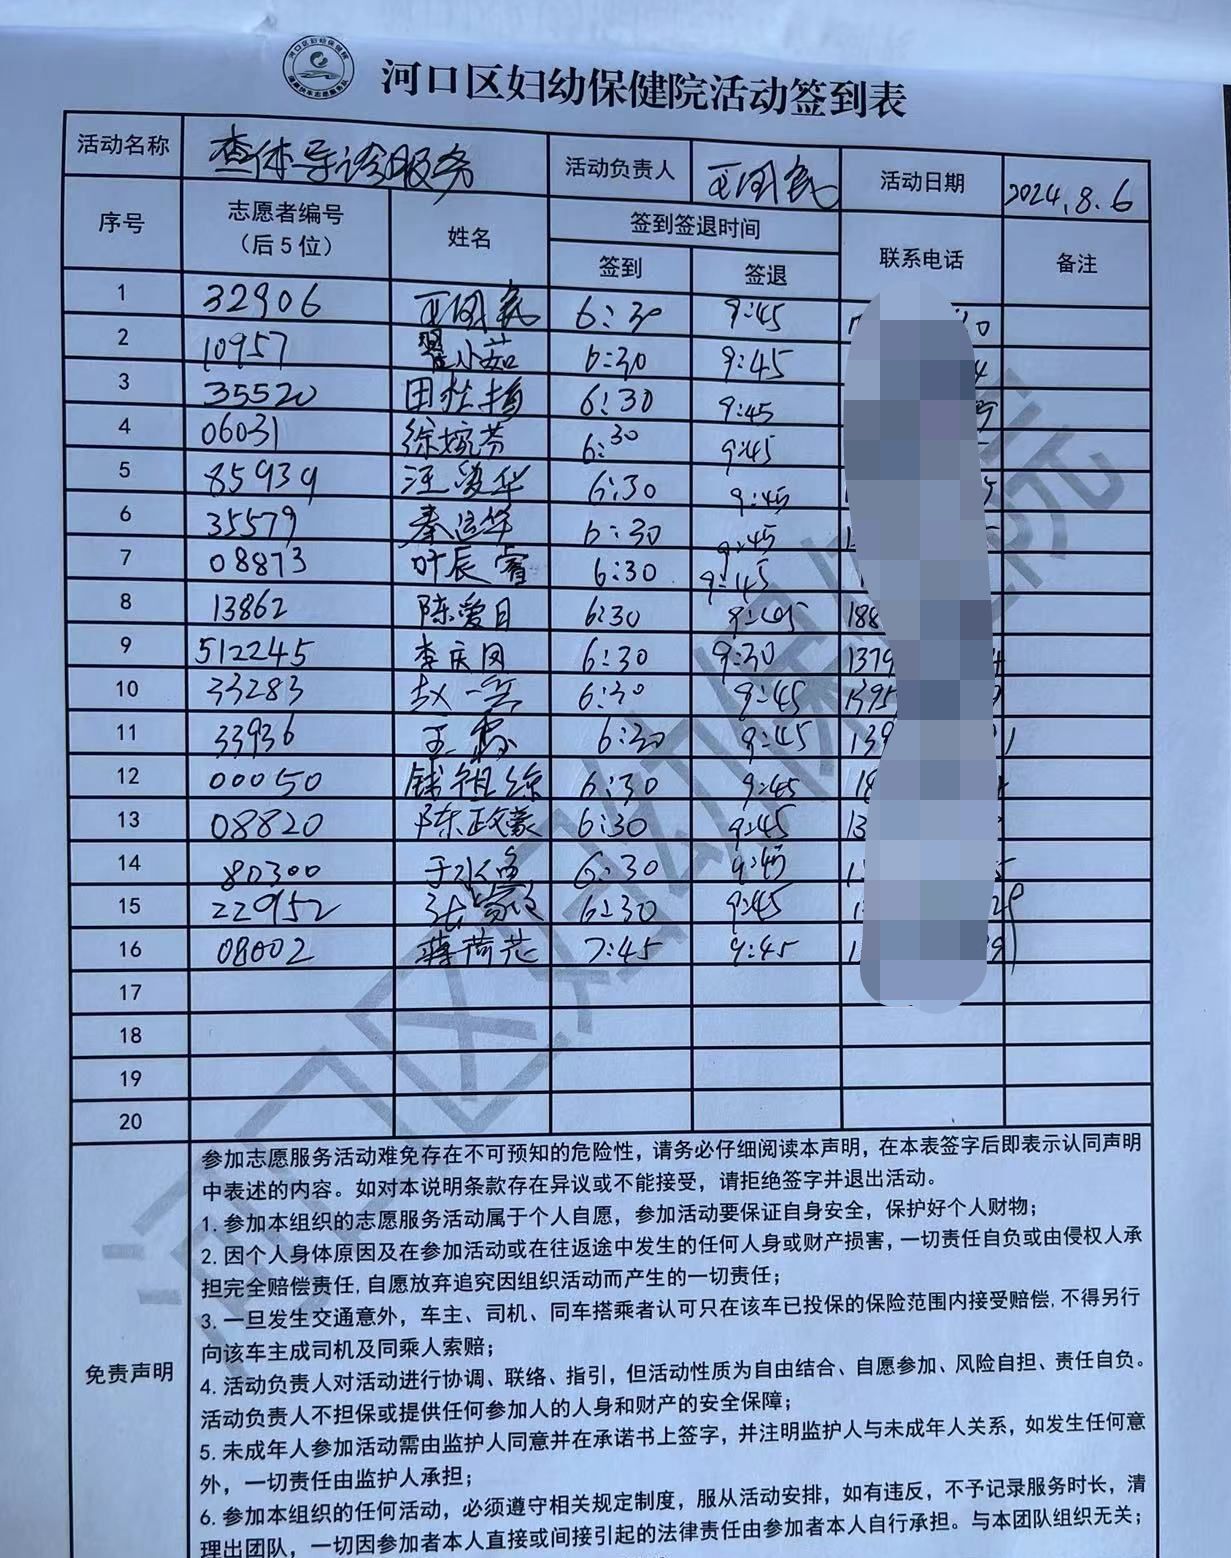 河口区妇幼保健院
河口区妇幼保健院活动签到表
活动名称 查体导诊服务 活动负责人 王国民 活动日期 2024.8.6
序号 志愿者编号（后5位） 姓名 签到签退时间 联系电话 备注
签到 签退
1 32906 6:30 9:45
2 10957 翟小茹 6:30 9:45
3 35520 6:30 9:45
4 06031 6:30 9:45
5 85939 汪爱华 6:30 9:45
6 35579 秦运华 6:30 9:45
7 08873 叶辰睿 6:30 9:45
8 13862 陈爱目 6:30 9:45 188
9 512245 李庆凤 6:30 9:30 1379
10 33283 赵一 6:30 9:45 1395
11 33936 王 6:30 9:45 139
12 00050 钱祖 6:30 9:45 18
13 08820 陈政豪 6:30 9:45 13
14 80300 于 6:30 9:45
15 22952 张 6:30 9:45
16 08002 蒋荷花 7:45 9:45
17
18
19
20
免责声明
参加志愿服务活动难免存在不可预知的危险性，请务必仔细阅读本声明，在本表签字后即表示认同声明
中表述的内容。如对本说明条款存在异议或不能接受，请拒绝签字并退出活动。
1. 参加本组织的志愿服务活动属于个人自愿，参加活动要保证自身安全，保护好个人财物；
2. 因个人身体原因及在参加活动或在往返途中发生的任何人身或财产损害，一切责任自负或由侵权人承
担完全赔偿责任，自愿放弃追究因组织活动而产生的一切责任；
3. 一旦发生交通意外，车主、司机、同车搭乘者认可只在该车已投保的保险范围内接受赔偿，不得另行
向该车主成司机及同乘人索赔；
4. 活动负责人对活动进行协调、联络、指引，但活动性质为自由结合、自愿参加、风险自担、责任自负。
活动负责人不担保或提供任何参加人的人身和财产的安全保障；
5. 未成年人参加活动需由监护人同意并在承诺书上签字，并注明监护人与未成年人关系，如发生任何意
外，一切责任由监护人承担；
6. 参加本组织的任何活动，必须遵守相关规定制度，服从活动安排，如有违反，不予记录服务时长，清
理出团队，一切因参加者本人直接或间接引起的法律责任由参加者本人自行承担。与本团队组织无关；